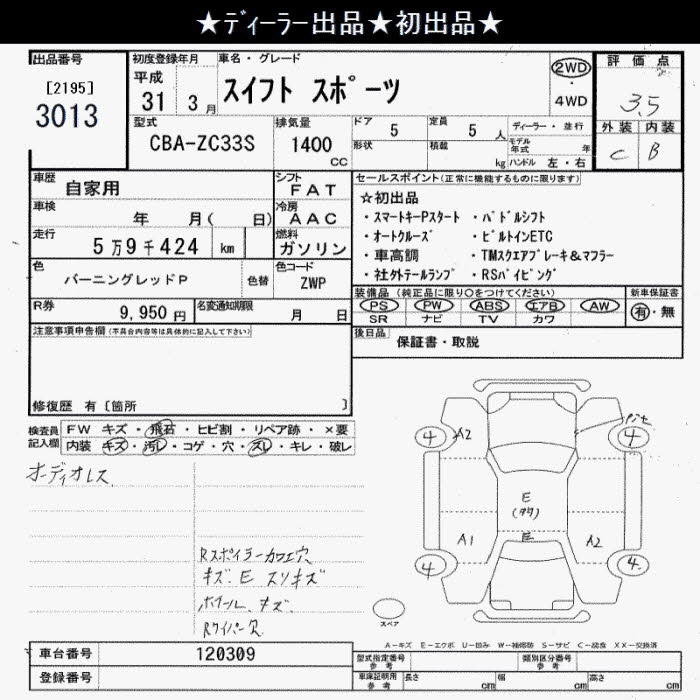 ★ディーラー出品★初出品★
出品番号
[2195]
3013
初度登録年月
平成
31 3 月
車名・グレード
スイフト スポーツ
2WD
・
4WD
評価点
3.5
外装 内装
C B
型式
CBA-ZC33S
排気量
1400
CC
ドア 5
定員 5 人
形状
積載 kg
ディーラー・並行
モデル年式 年
ハンドル 左・右
車歴 自家用
シフト
FAT
車検 年 月( 日)
冷房
AAC
走行 5万9千424 km
燃料
ガソリン
色 バーニングレッドP 色替
色コード
ZWP
R券 9,950 円
名変通知期限
月 日
セールスポイント(正常に機能するものに限ります)
☆初出品
・スマートキーPスタート ・パドルシフト
・オートクルーズ ・ビルトインETC
・車高調 ・TMスクエアブレーキ&マフラー
・社外テールランプ ・RSパイピング
装備品(純正品に限り○をつけてください)
PS PW ABS エアB AW
SR ナビ TV カワ
新車保証書
有・無
後日品
保証書・取説
注意事項申告欄(不具合内容等は具体的に記入して下さい)
修復歴 有〔箇所 〕
検査員記入欄
FW キズ・飛石・ヒビ割・リペア跡・×要
内装 キズ・汚レ・コゲ・穴・スレ・キレ・破レ
オーディオレス
Rスポイラーカワエ穴
キズ E スリキズ
ホイール キズ
Rワイパー欠
4 A2
4
E
E
A1 A2
4 4
スペア
A-キズ E-エクボ U-凹み W-補修跡 S-サビ C-腐食 XX-交換済
車台番号 120309
登録番号
型式指定番号
参考
類別区分番号
参考
車庫証明用
参考
長さ cm 幅 cm 高さ cm